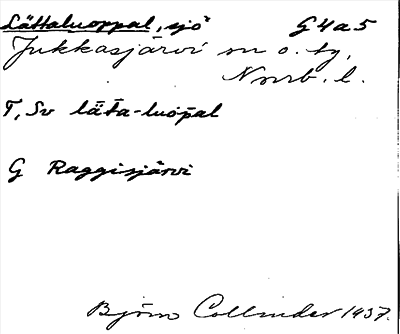 Lättaluoppal, sjö G4a5
Jukkasjärvi sn o. tg,
Nrrb. l.
T, Sv läťa-luop̄al
G Raggisjärvi
Björn Collinder 1937.